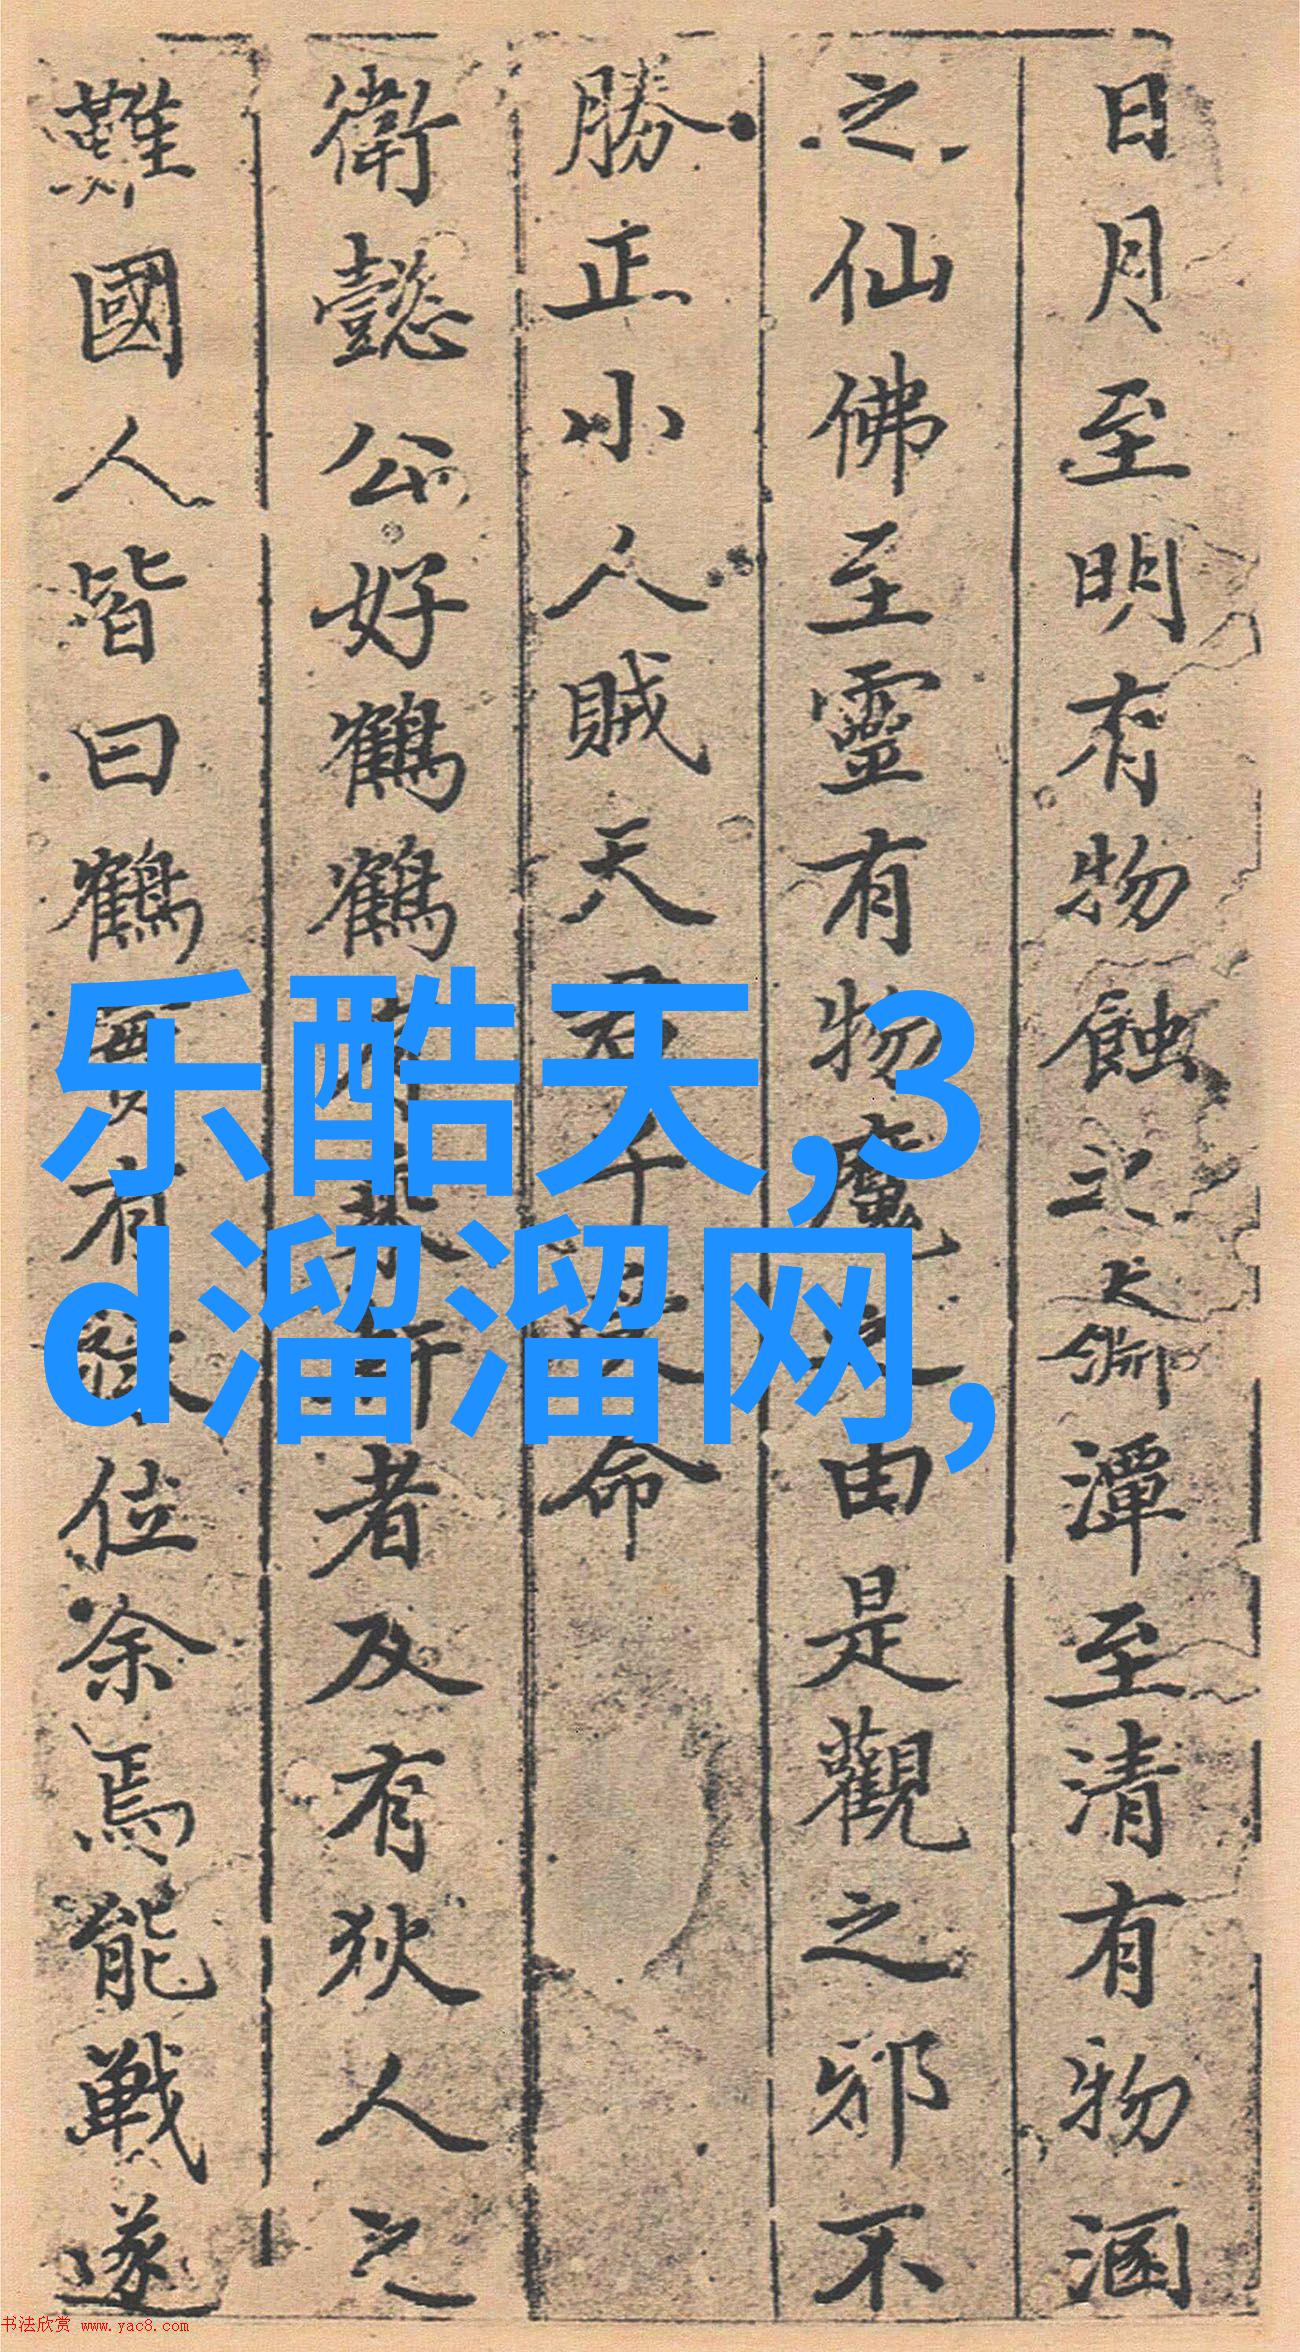 日月至明有物蝕之大淵潭至清有物溷
之仙佛至靈有物魔之由是觀之邪不
勝正小人賊天君子受命
衛懿公好鶴鶴有乘軒者及有狄人之
難國人皆曰鶴實有祿位余焉能戰遂
乐酷天,3
d溜溜网,
书法欣赏 www.yac8.com